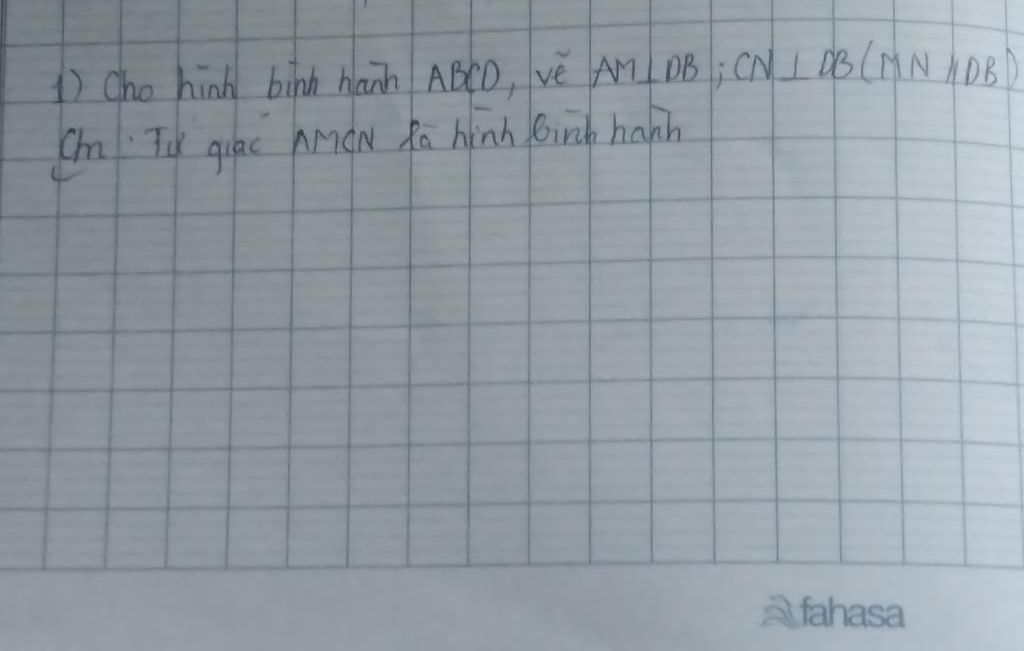 1) Cho hình bình hành ABCD, vẽ AM ⊥ DB ; CN ⊥ DB (MN // DB)
Cm : Tứ giác AMCN là hình bình hành
fahasa